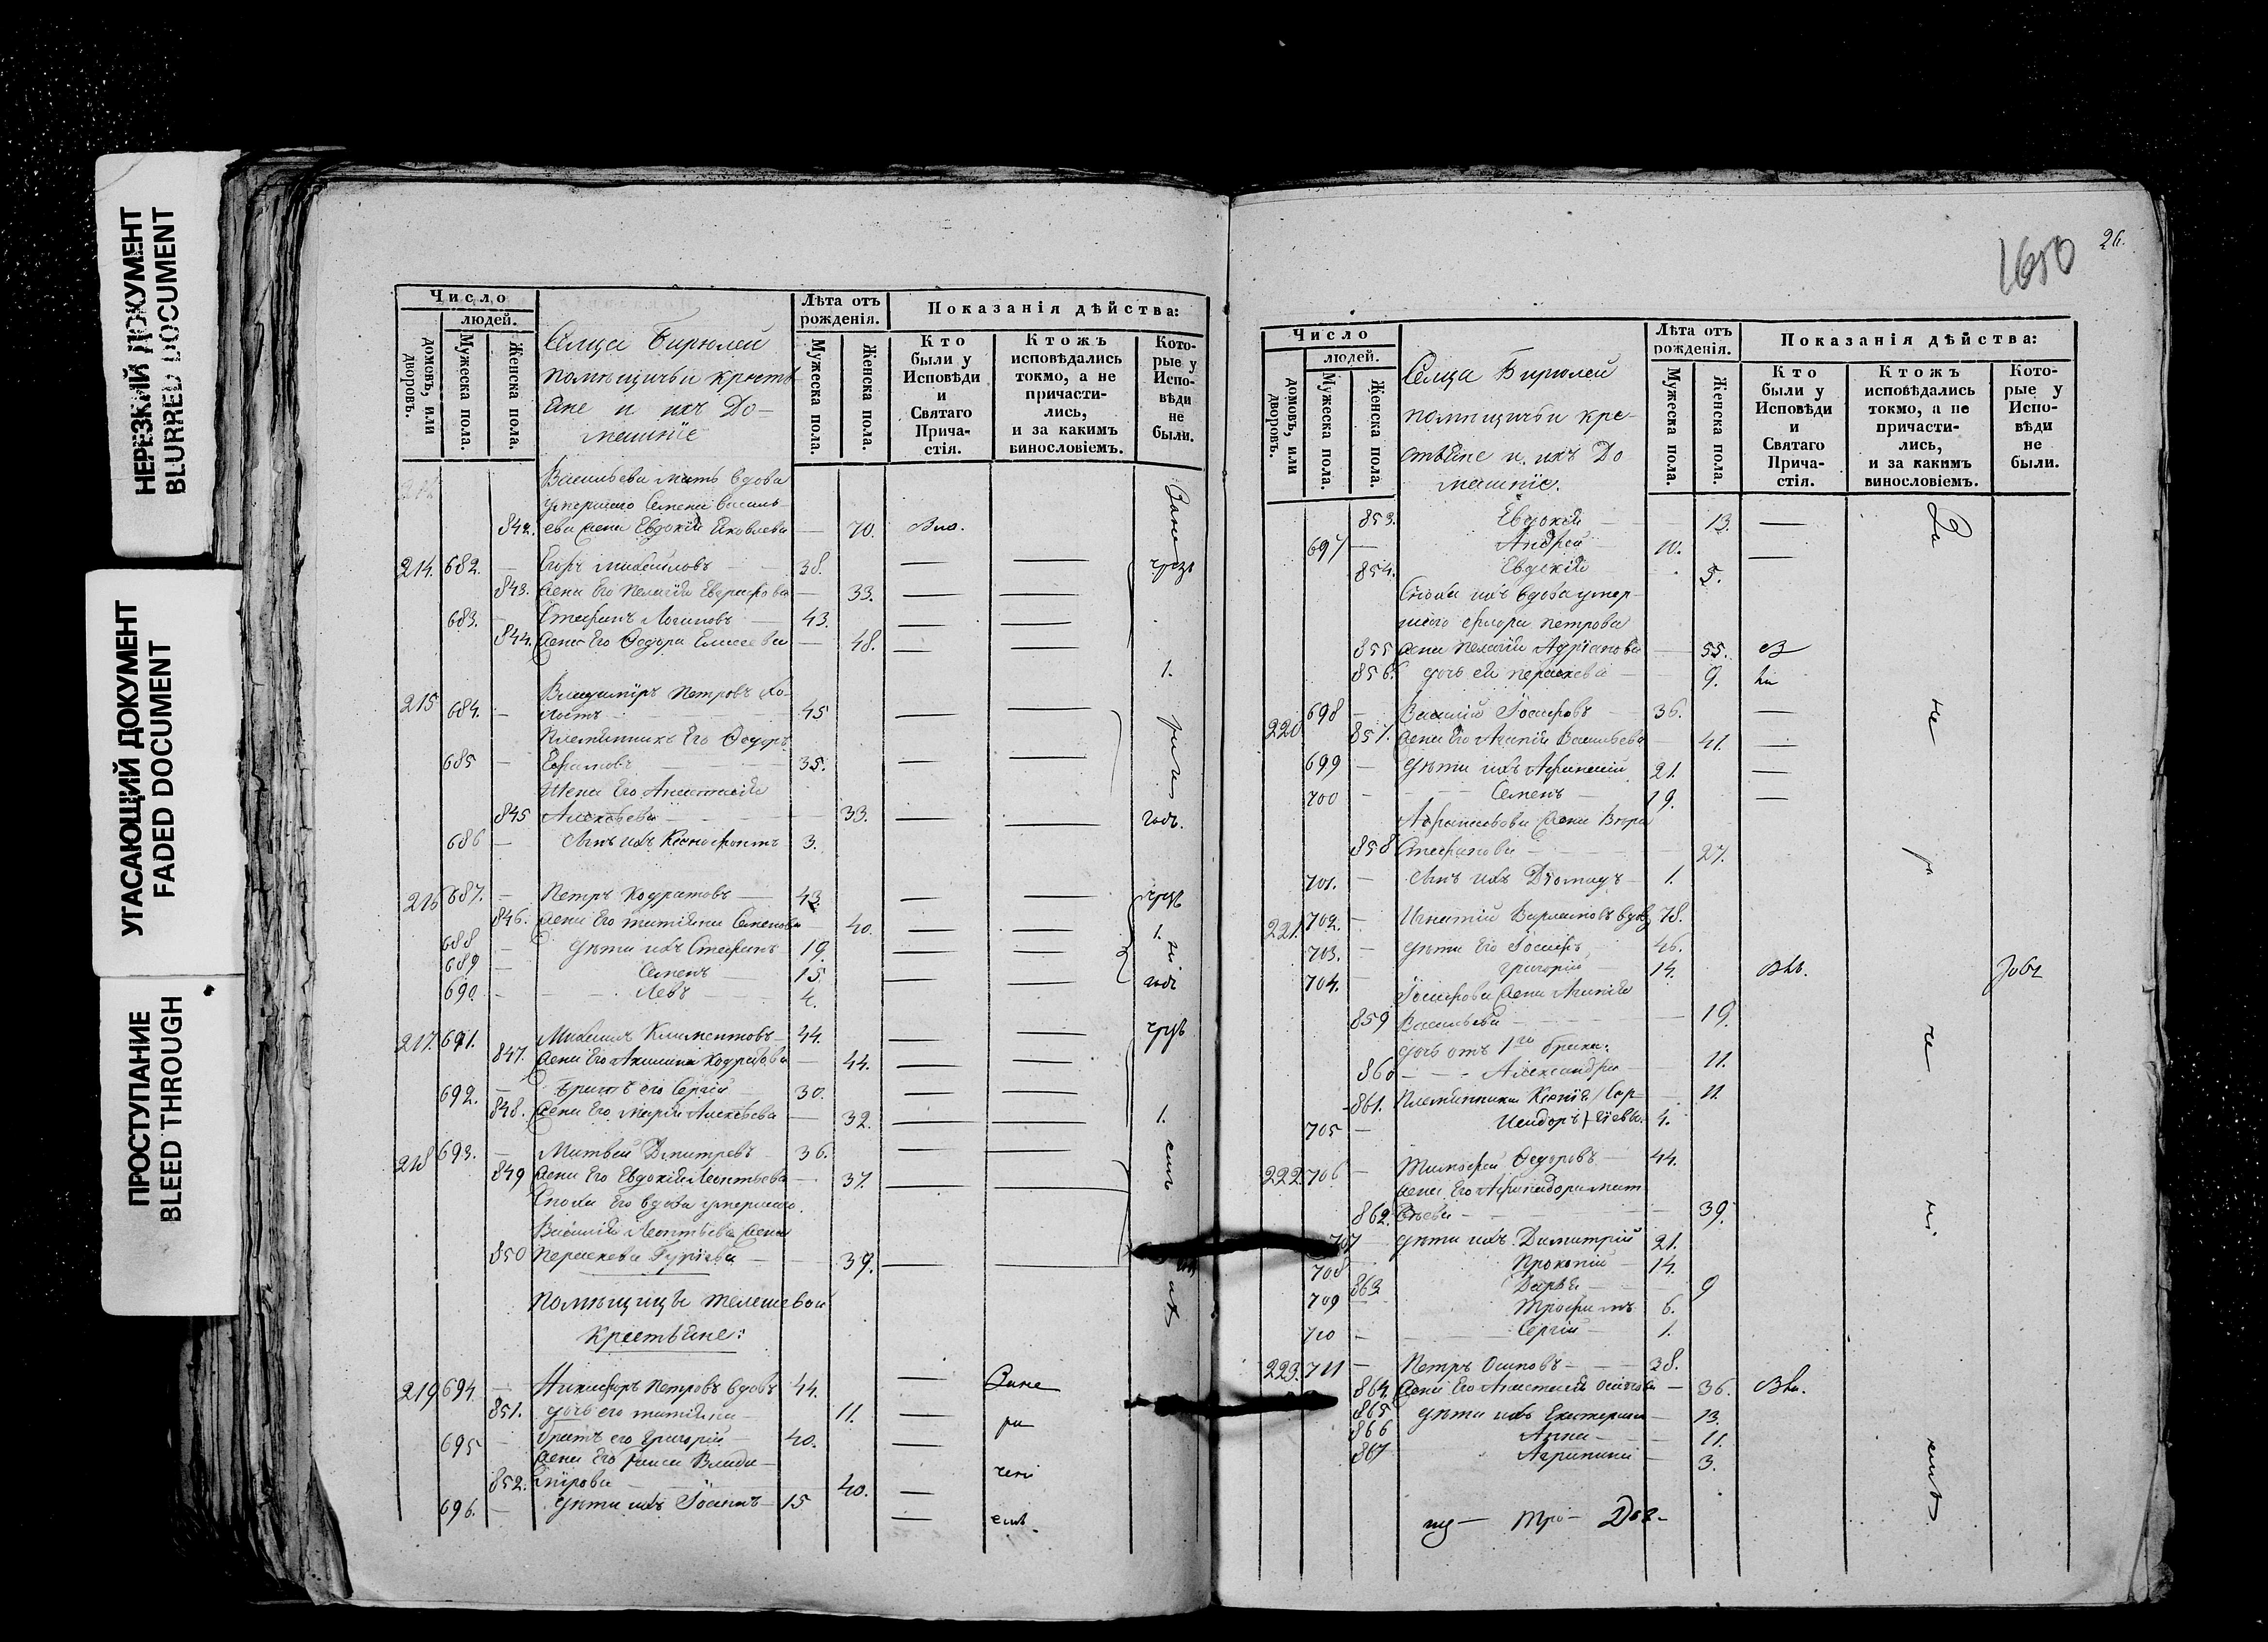 НЕРЕЗКИЙ ДОКУМЕНТ
BLURRED DOCUMENT
УГАСАЮЩИЙ ДОКУМЕНТ
FADED DOCUMENT
ПРОСТУПАНИЕ
BLEED THROUGH
Число
людей.
домовъ, или дворовъ.
Мужеска пола.
Женска пола.
Сельца Бирюлей
помѣщичьи крестья
яне и ихъ До-
машніе
Лѣта отъ рожденія.
Мужеска пола.
Женска пола.
Показанія дѣйства:
Кто были у Исповѣди и Святаго Прича-стія.
Ктожъ исповѣдались токмо, а не причасти-лись, и за какимъ винословіемъ.
Кото-рые у Испо-вѣди не были.
Васильева мать вдова
умершаго Семена Василь-
842. ева жена Евдокія Яковлева — 70.
214. 682. — Егоръ Михайловъ — 38.
843. жена его Пелагія Евграфова — 33.
683. — Стефанъ Логиновъ — 43.
844. жена его Ѳедора Елисеева — 48.
1.
Владиміръ Петровъ хо-
215 684. — лостъ 45
Племянникъ его Ѳедоръ
685 — Ефимовъ 35.
Жена его Анастасія
845 Алексѣева 33.
годъ.
686 — сынъ ихъ Ксенофонтъ 3.
216 687. — Петръ Кодратовъ — 43.
846. жена его Татіяна Семенова 40.
1.
688 — дѣти ихъ Стефанъ 19.
689 — Семенъ 15.
690. — Левъ 4.
годъ
217. 691. Михаилъ Климентовъ 44.
847. жена его Акилина Кодратова — 44.
692. — братъ его Сергій 30.
848. жена его Марія Алексѣева — 32.
1.
218 693. — Матвей Дмитревъ 36.
849 жена его Евдокія Леонтьева — 37.
Сноха его вдова умершаго
Василія Леонтьева жена
850 Параскева Гуріева — 39.
Помѣщицы Телешевой
крестьяне:
219 694. — Никифоръ Петровъ вдовъ 44.
851. дочь его Татіяна 11.
695 — братъ его Григорій 40.
жена его Раиса Влади-
852. мірова 40.
696. — дѣти ихъ Іоаннъ 15
1650
26.
Число
людей.
домовъ, или дворовъ.
Мужеска пола.
Женска пола.
Сельца Бирюлей
помѣщичьи кре-
стьяне и ихъ До
машніе.
Лѣта отъ рожденія.
Мужеска пола.
Женска пола.
Показанія дѣйства:
Кто были у Исповѣди и Святаго Прича-стія.
Ктожъ исповѣдались токмо, а не причасти-лись, и за какимъ винословіемъ.
Кото-рые у Испо-вѣди не были.
853. Евдокія — 13.
697 — Андрей 10.
854. Евдокія 5.
Сноха ихъ вдова умер-
шаго Флора Петрова
855 жена Пелагія Адріанова 55.
856. дочь ея Параскева — 9.
220 698 — Василій Іосифовъ 36.
857. жена его Агапія Васильева — 41.
699 — дѣти ихъ Афанасій 21.
700 — Семенъ 19.
Афанасьева жена Вѣра
858 Стефанова 27.
701. — сынъ ихъ Діомидъ 1.
221. 702. — Игнатій Варламовъ вдов 78.
703. — дѣти его Іосифъ 46.
704. Григорій 14.
Іосифова жена Агапія
859 Васильева 19.
дочь отъ 1го брака:
860 Александра — 11.
861. Племянники Ксенія Сер- 11
705 — Исидоръ гіевы. 4.
222 706 — Тимофей Ѳедоровъ 44.
жена его Афинадора Мат
862. вѣева 39.
707 дѣти ихъ Димитрій 21.
708 Прокопій — 14.
863 Дарья 9
709 Трофимъ 6.
710 — Сергій 1.
223. 711 — Петръ Осиповъ 38.
864. жена его Анастасія Осипова — 36.
865 дѣти ихъ Екатерина — 13.
866 Анна — 11.
867 Агрипина — 3.